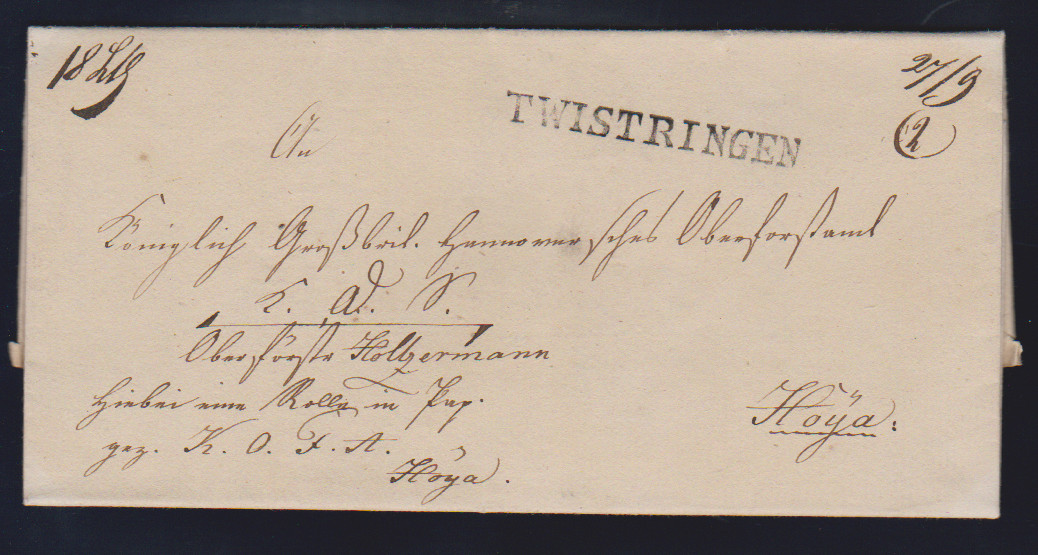 18 Lth
27/9
TWISTRINGEN
2
An
Königlich Großbrit. Hannoversches Oberforstamt
K. D. S.
Oberförster Holtzermann
Hiebei eine Rolle in Pap.
gez. K. O. F. A.
Hoÿa.
Hoÿa.